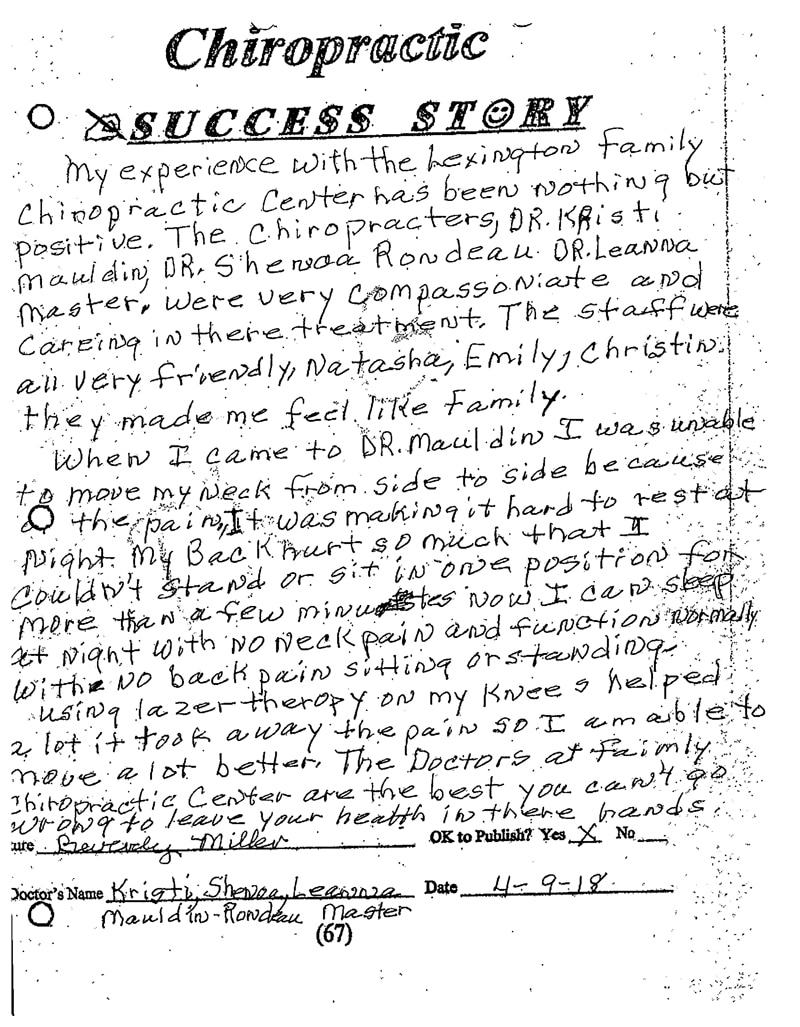 Chiropractic
SUCCESS STORY
My experience with the Lexington Family
Chiropractic Center has been nothing but
positive. The Chiropracters, DR. Kristi
Mauldin, DR. Shenoa Rondeau DR. Leanna
Master. were very compassoniate and
Careing in there treatment. The staff were
all very friendly, Natasha, Emily, Christin.
they made me feel like Family.
When I came to DR. Mauldin I was unable
to move my neck from side to side because
of the pain, It was making it hard to rest at
Night. My Back hurt so much that I
Couldn't stand or sit in one position for
more than a few minutes Now I can sleep
at Night with no neck pain and function normally
with no back pain sitting or standing.
using lazer theropy on my Knees helped
a lot it took away the pain so I am able to
move a lot better. The Doctors at Faimly
Chiropractic Center are the best you can't go
wrong to leave your health in there hands.
ure Beverly Miller OK to Publish? Yes X No
Doctor's Name Kristi, Shenoa, Leanna Date 4-9-18
Mauldin-Rondeau Master
(67)